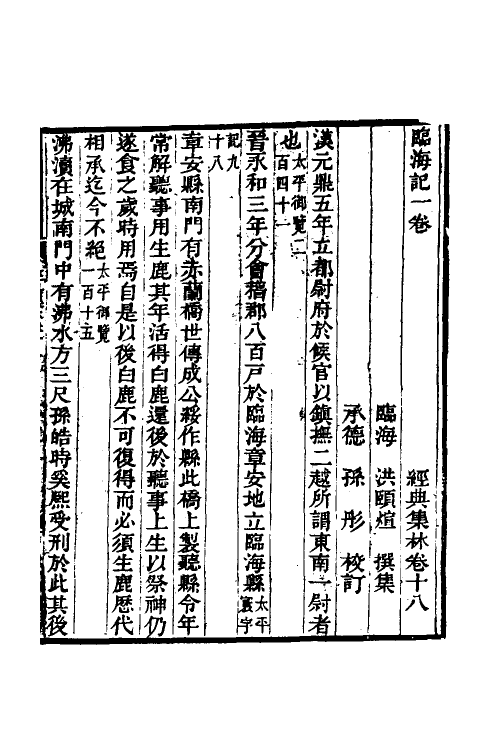 臨海記一卷　經典集林卷十八
臨海　洪頤煊　撰集
承德　孫　彤　校訂
漢元鼎五年立都尉府於候官以鎮撫二越所謂東南一尉者
也太平御覽二百四十一
晉永和三年分會稽郡八百戸於臨海章安地立臨海縣太平寰宇
記九十八
章安縣南門有赤蘭橋世傳成公綏作縣此橋上製聽縣令年
常解聽事用生鹿其年活得白鹿還後於聽事上生以祭神仍
遂食之歲時用焉自是以後白鹿不可復得而必須生鹿歴代
相承迄今不絕太平御覽一百十五
沸瀆在城南門中有沸水方三尺孫皓時奚熙受刑於此其後